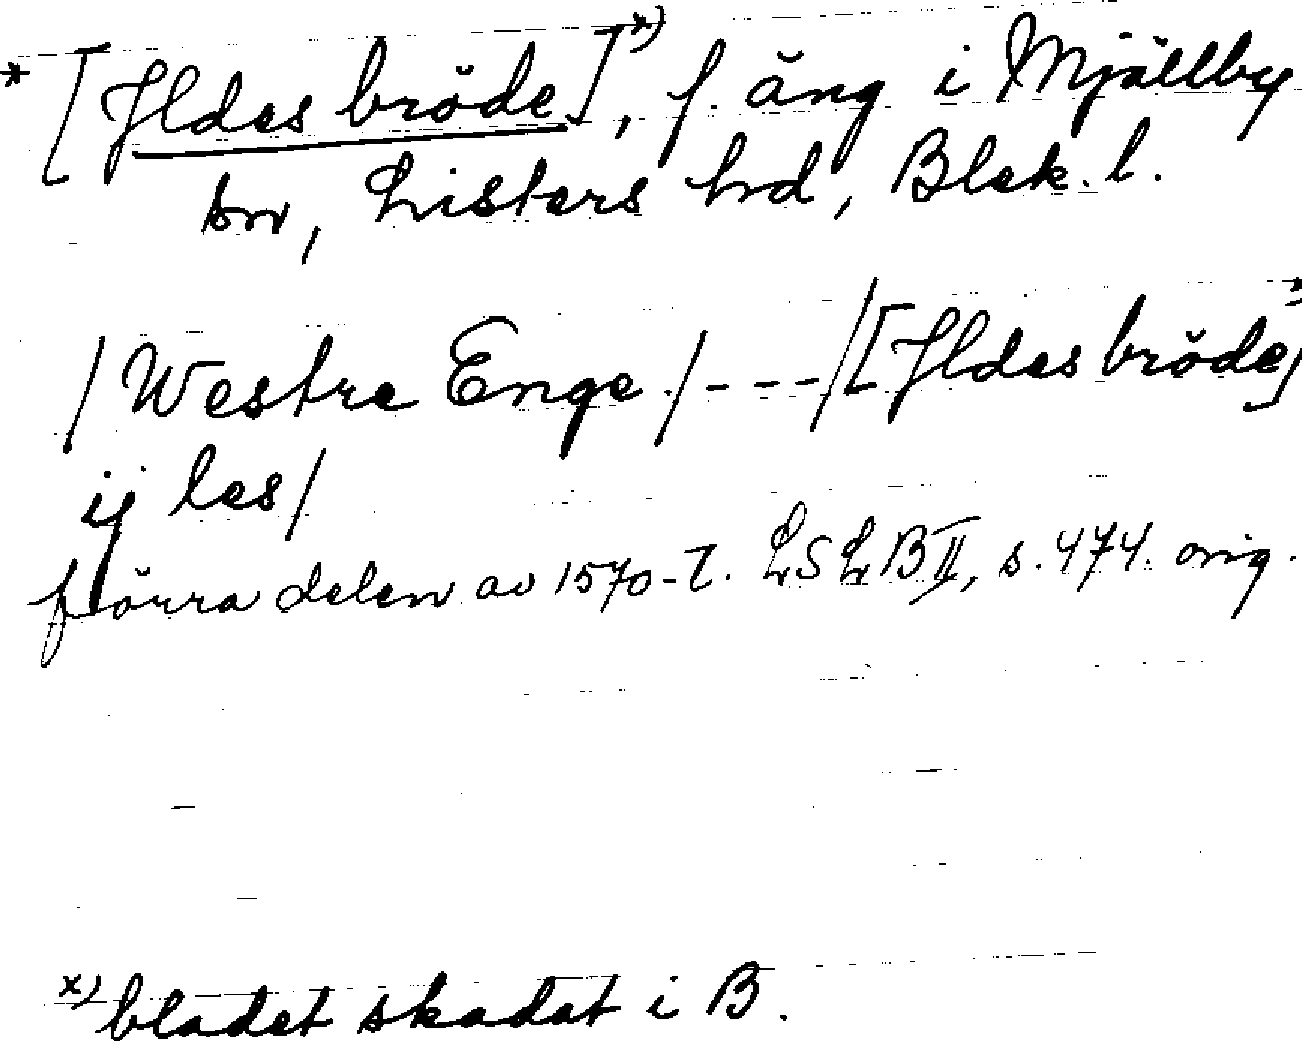 * [Ildes bröde]x), f. äng i Mjällby
sn, Listers hd, Blek. l.
/Westre Enge/---/[Ildes bröde]x)
ij les/
förra delen av 1570-t. LSLB II, s. 474. orig.
x) bladet skadat i B.